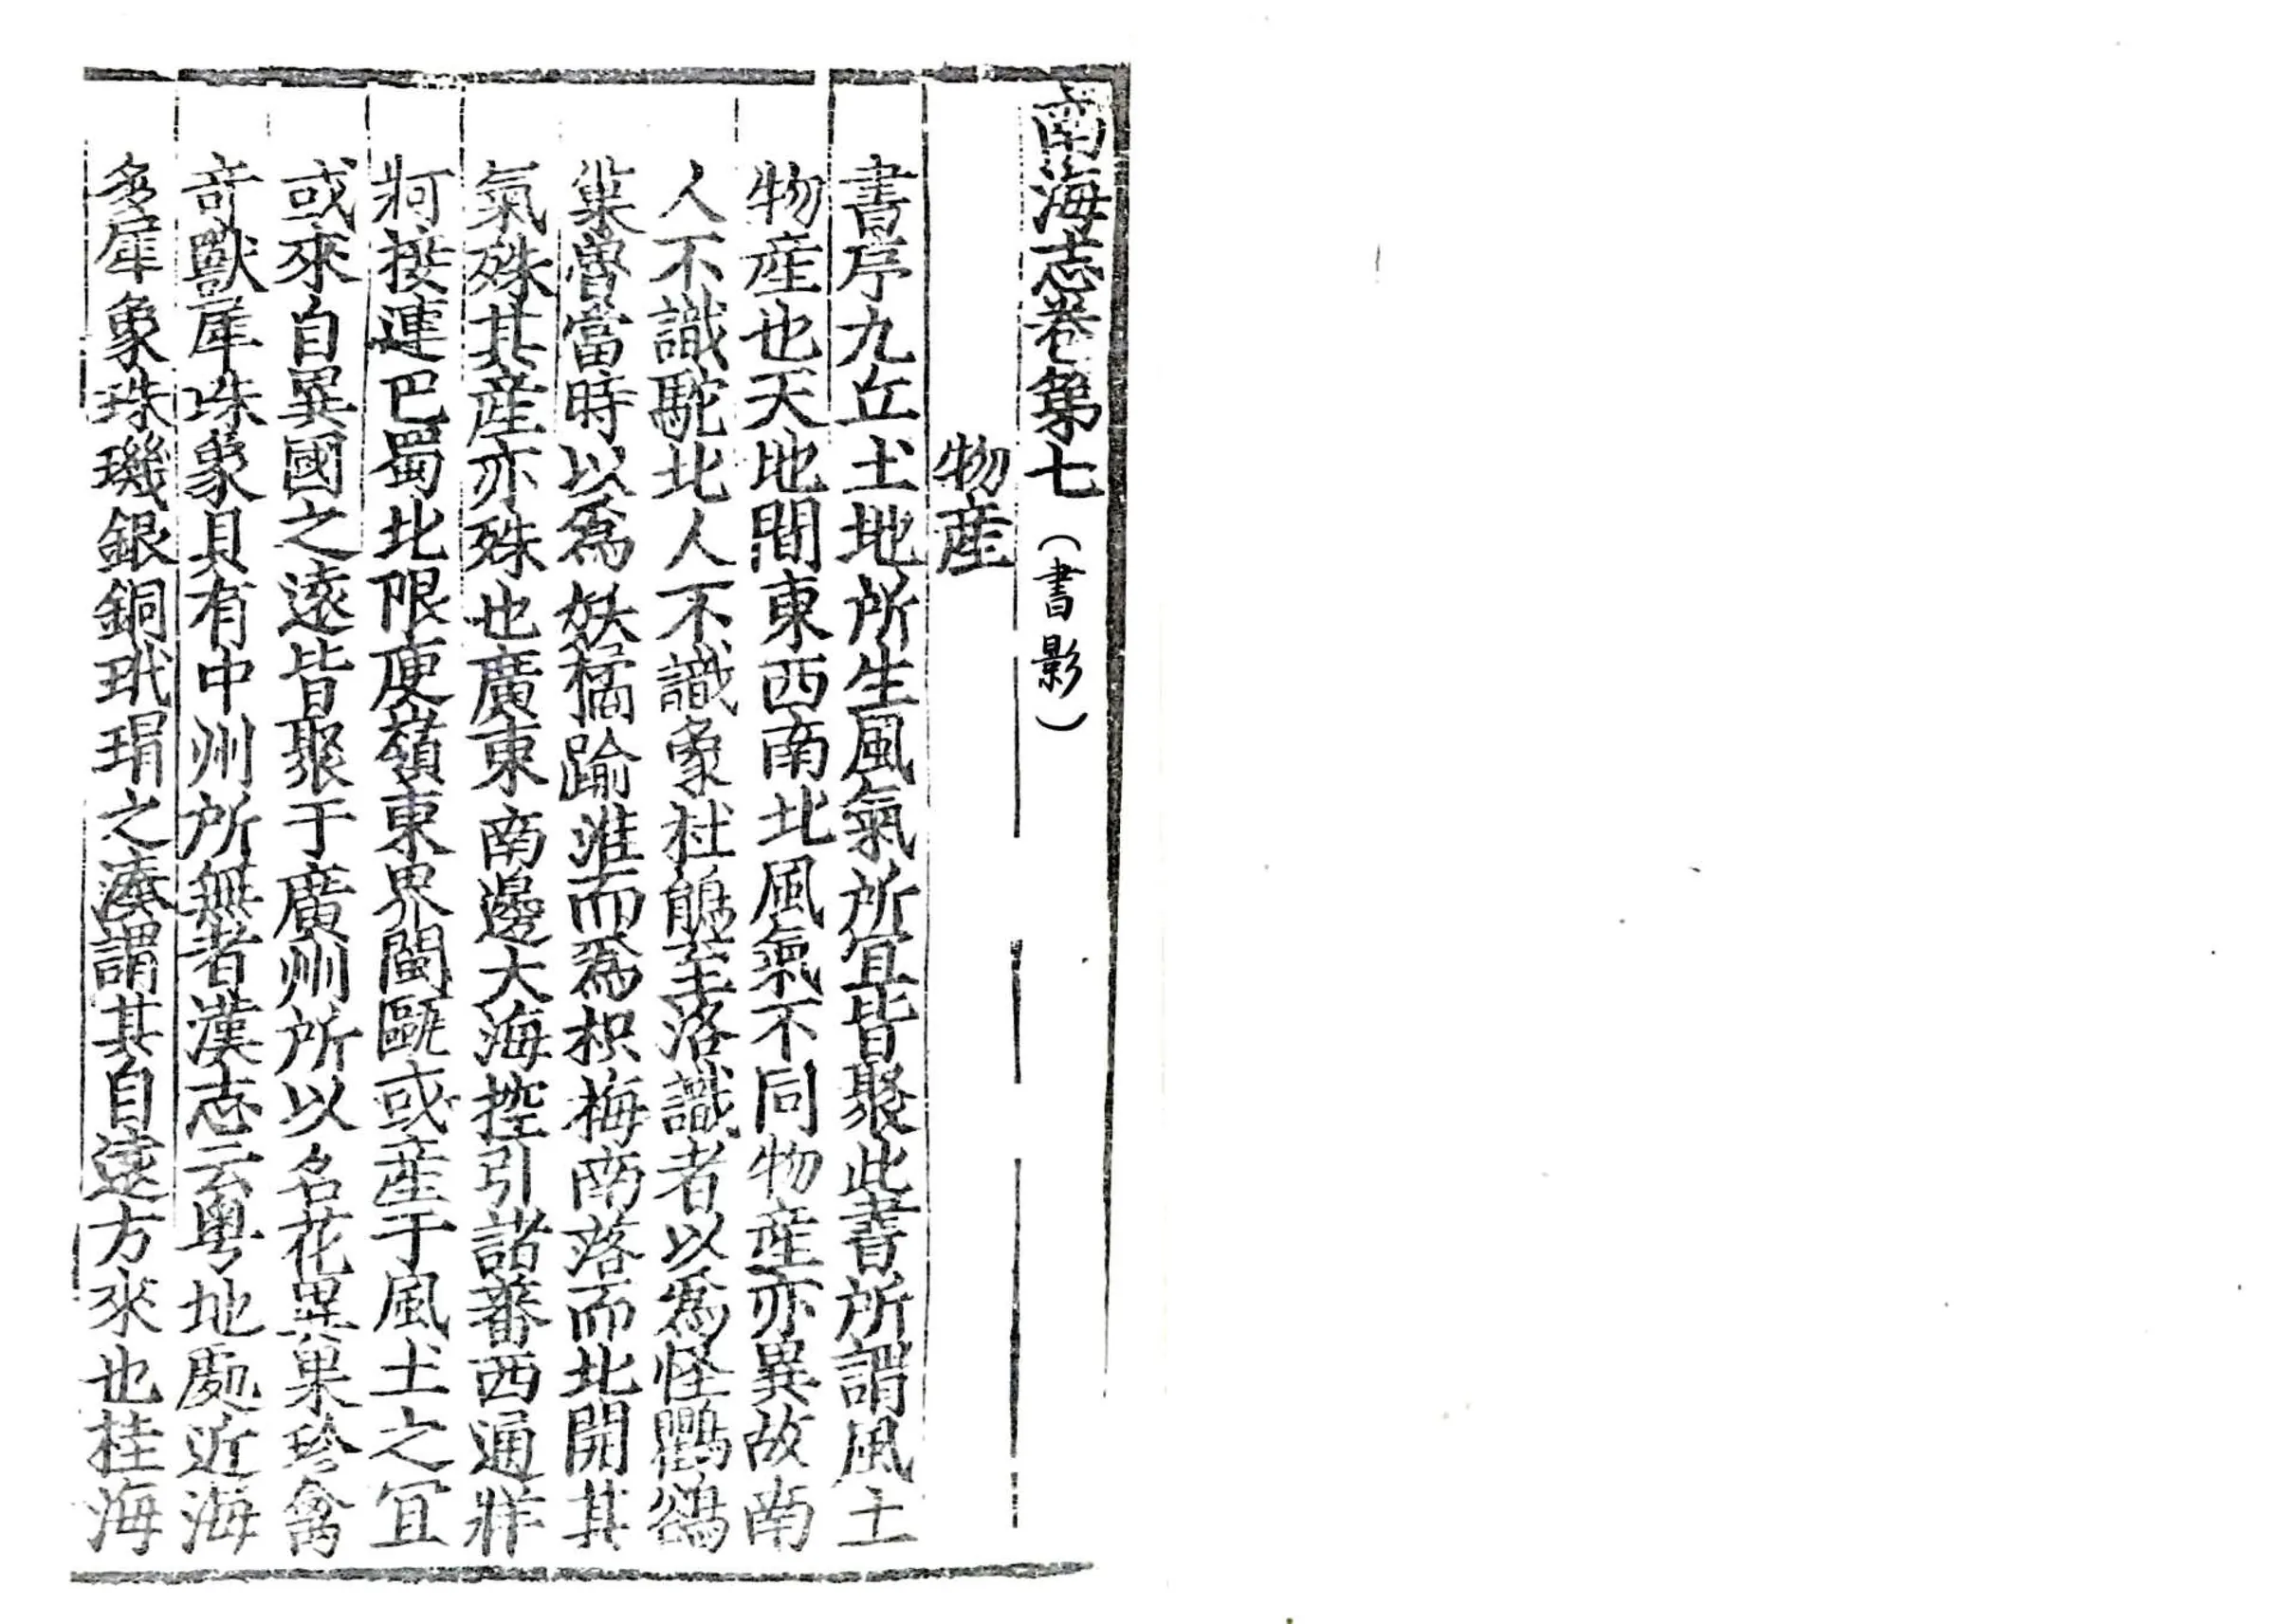 南海志卷第七（書影）
物産
書序九丘土地所生風氣所宜皆聚此書所謂風土
物産也天地間東西南北風氣不同物産亦異故南
人不識駝北人不識象杜鵑至洛識者以爲怪鸜鵒
巢魯當時以爲妖橘踰淮而爲枳梅南落而北開其
氣殊其産亦殊也廣東南邊大海控引諸蕃西通牂
牁接連巴蜀北限庾嶺東界閩甌或産于風土之冝
或來自異國之遠皆聚于廣州所以名花異菓珍禽
奇獸犀珠象貝有中州所無者漢志云粤地處近海
多犀象珠璣銀銅玳瑁之湊謂其自遠方來也桂海